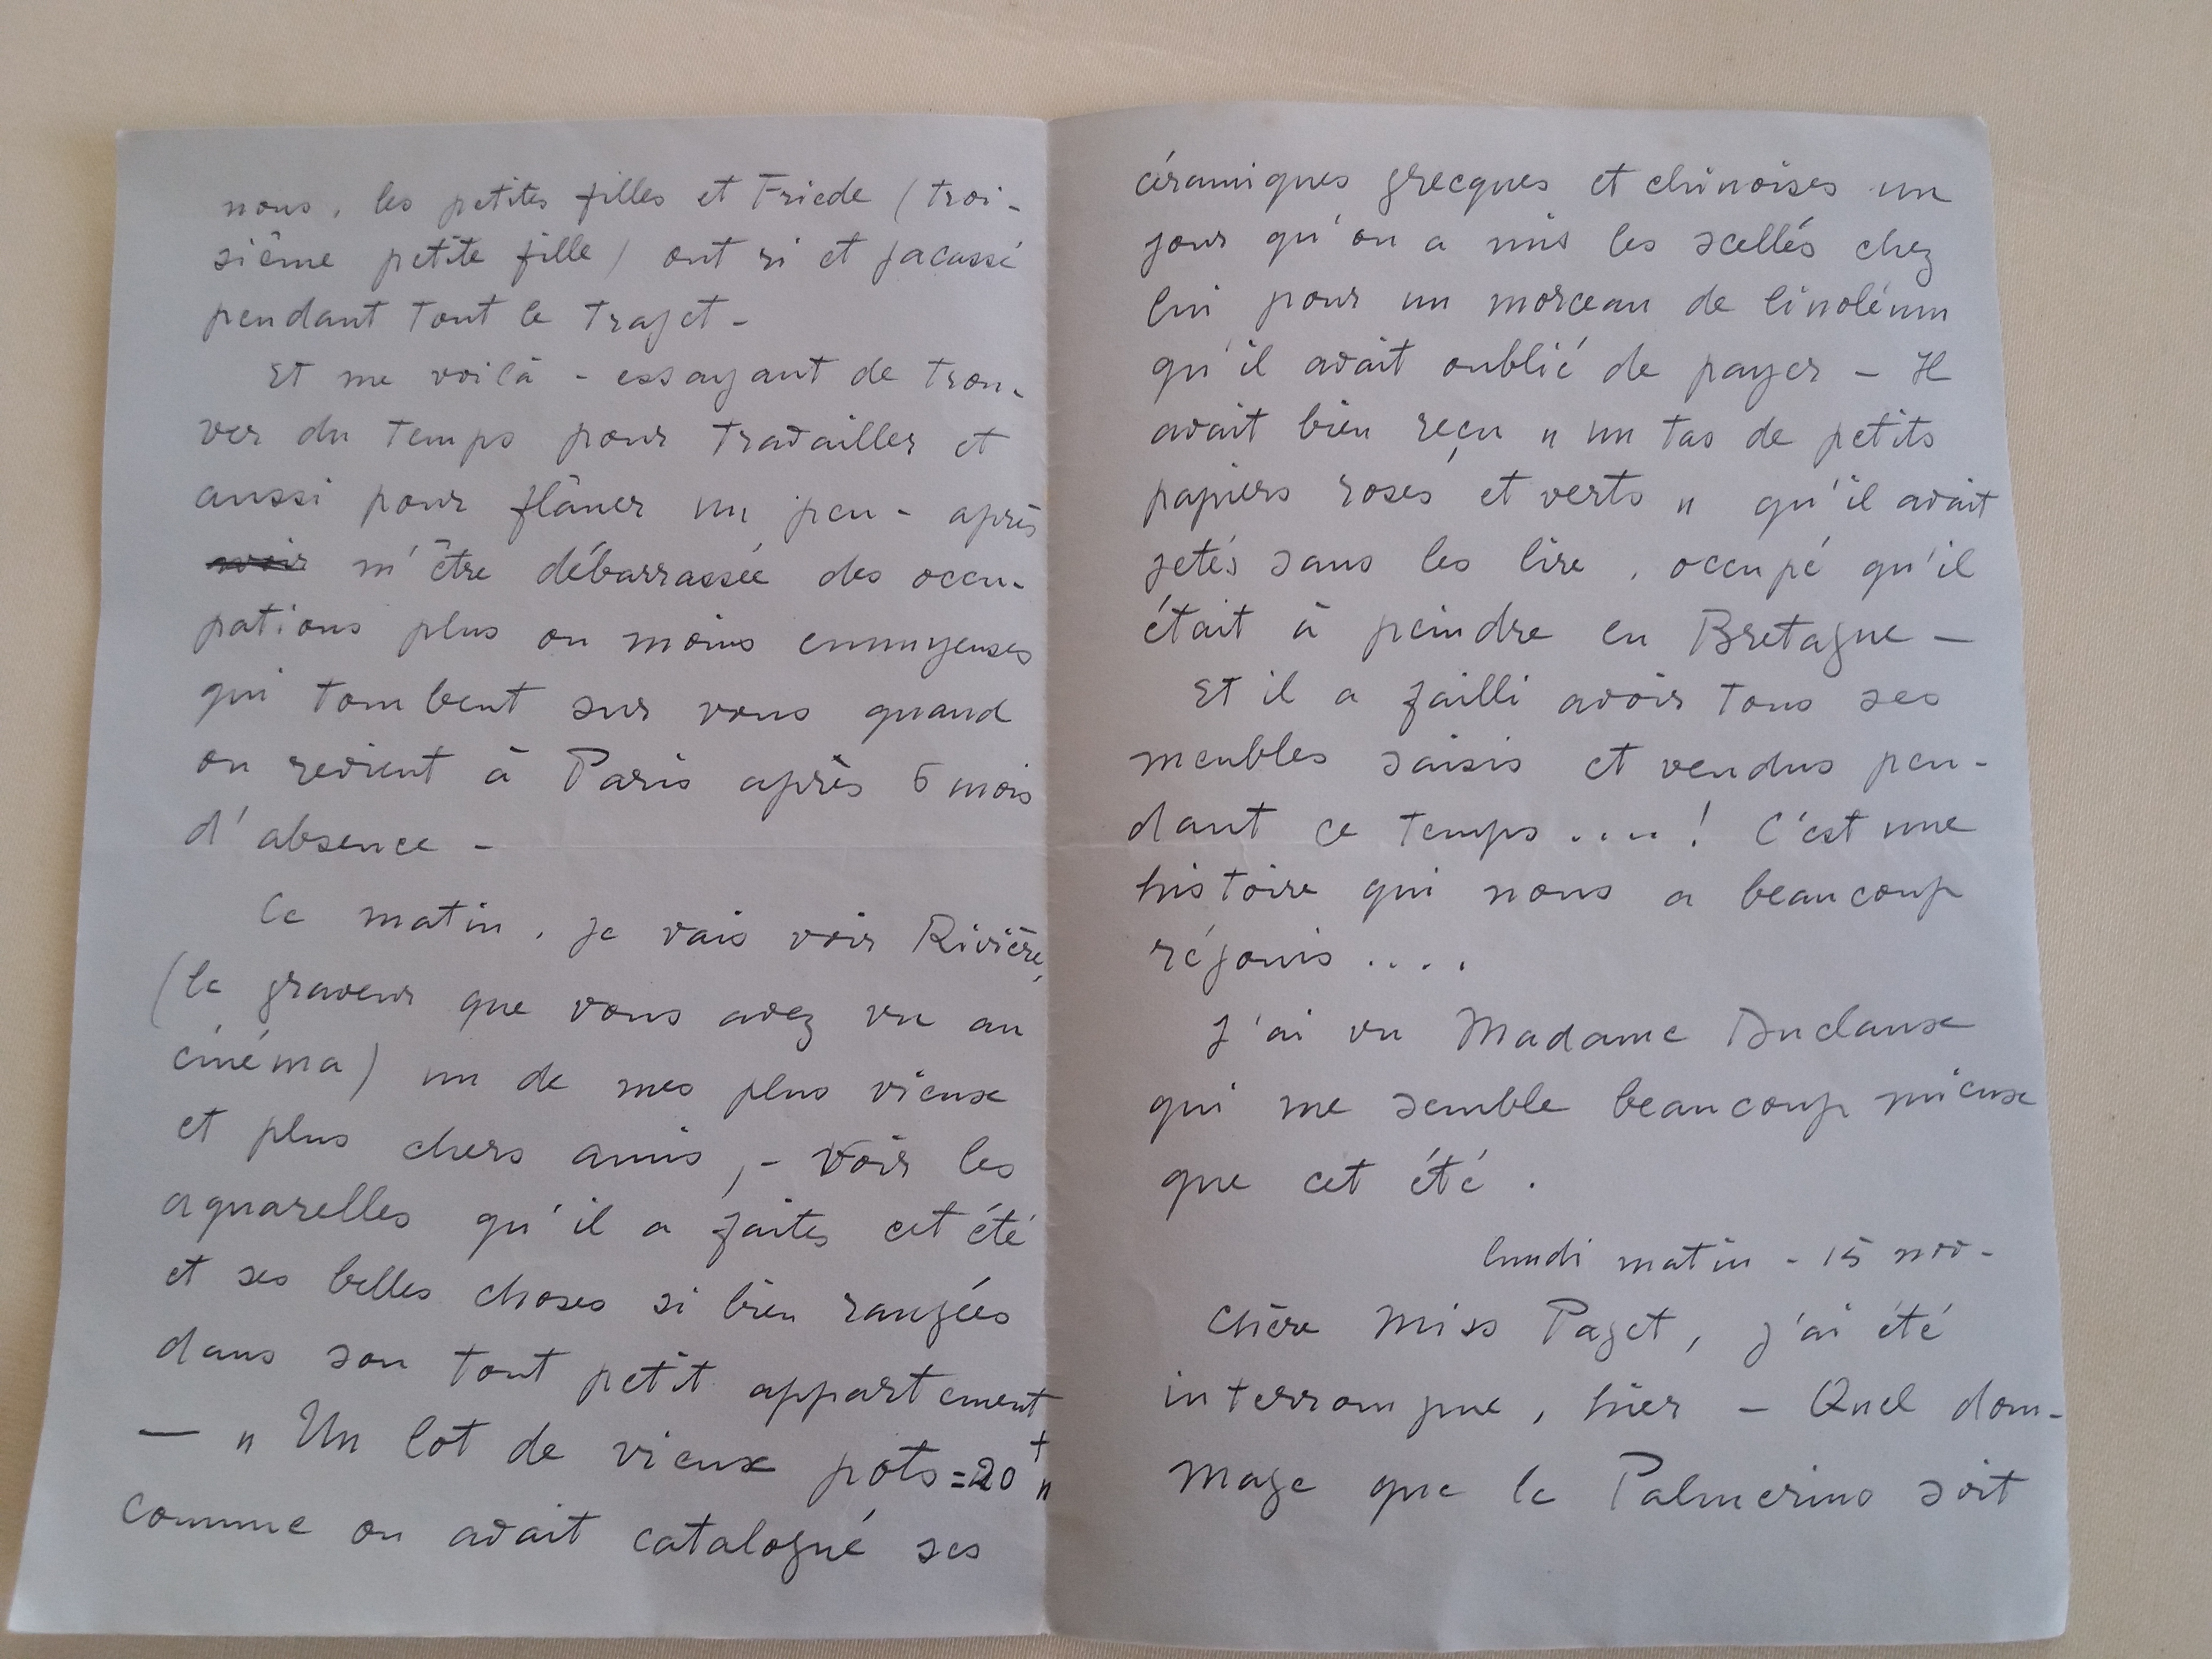 nous, les petites filles et Friede (troi-
sième petite fille) ont ri et jacassé
pendant tout le trajet -
Et me voilà - essayant de trou-
ver du temps pour travailler et
aussi pour flâner un peu - après
avoir m'être débarrassée des occu-
pations plus ou moins ennuyeuses
qui tombent sur vous quand
on revient à Paris après 6 mois
d'absence -
Ce matin, je vais voir Rivière,
(le graveur que vous avez vu au
cinéma) un de mes plus vieux
et plus chers amis, - voir les
aquarelles qu'il a faites cet été
et ses belles choses si bien rangées
dans son tout petit appartement
— " Un lot de vieux pots = 20 f "
comme on avait catalogué ses
céramiques grecques et chinoises un
jour qu'on a mis les scellés chez
lui pour un morceau de linoléum
qu'il avait oublié de payer — Il
avait bien reçu " un tas de petits
papiers roses et verts " qu'il avait
jetés sans les lire, occupé qu'il
était à peindre en Bretagne —
Et il a failli avoir tous ses
meubles saisis et vendus pen-
dant ce temps ....! C'est une
histoire qui nous a beaucoup
réjouis ....
J'ai vu Madame Duclaux
qui me semble beaucoup mieux
que cet été.
lundi matin - 15 nov-
Chère Miss Paget, j'ai été
interrompue, hier — Quel dom-
mage que le Palmerino soit